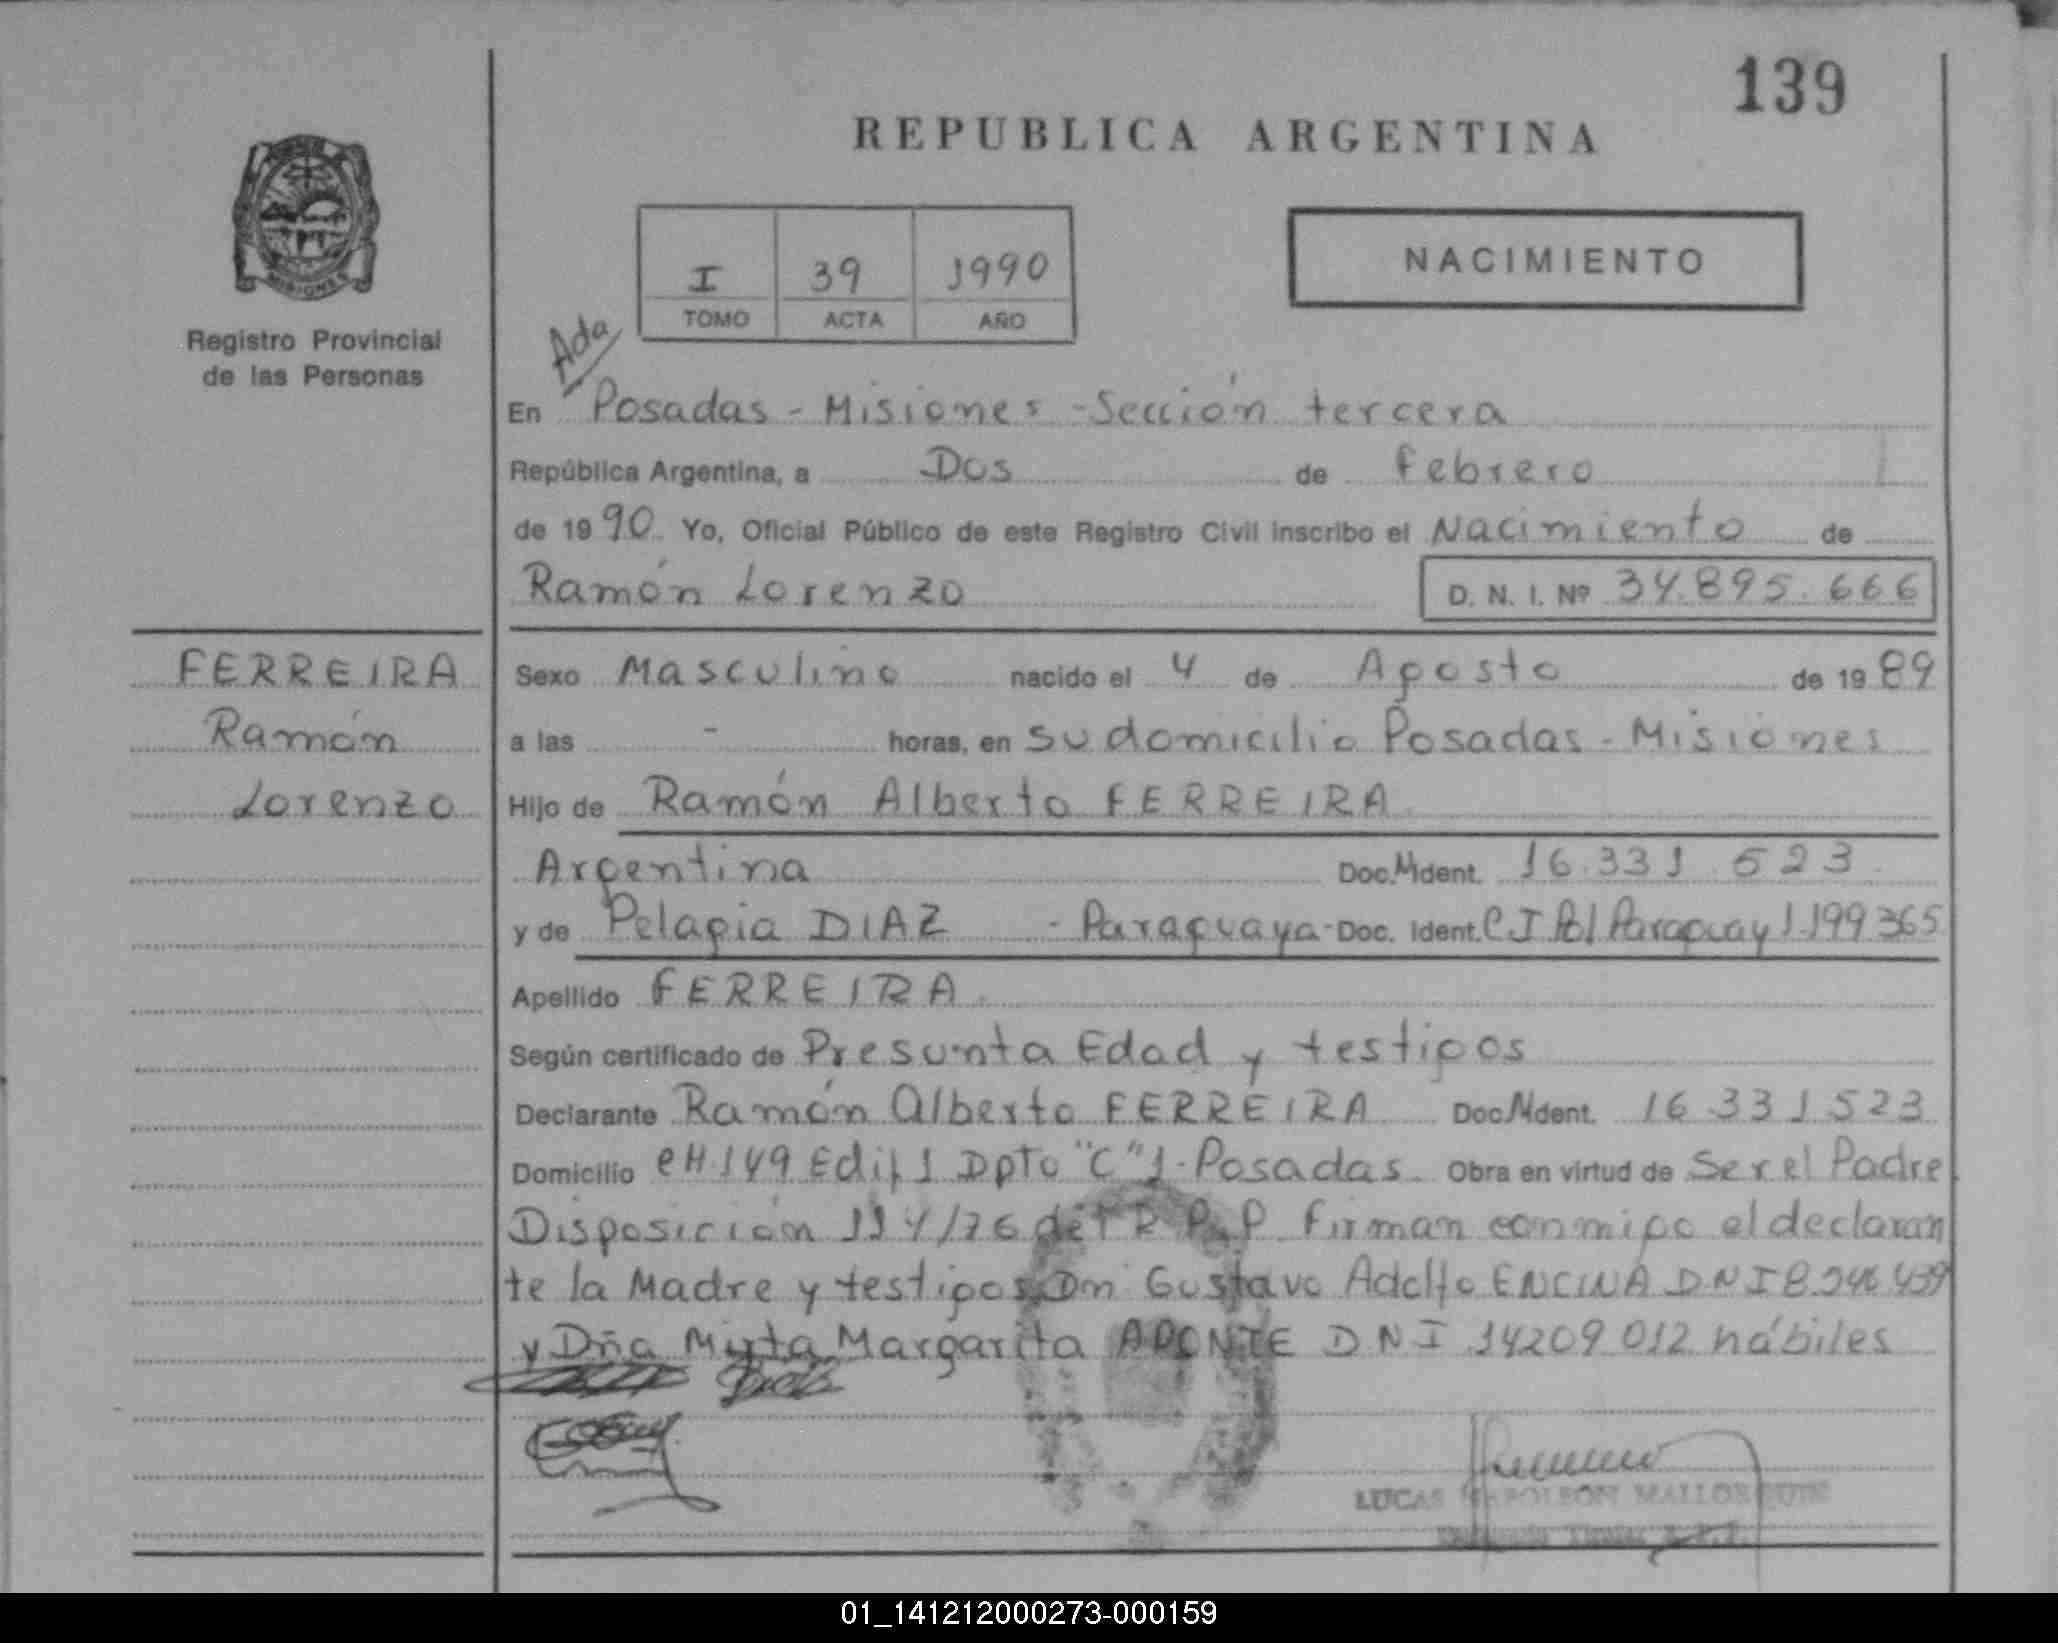 139
REPUBLICA ARGENTINA
MISIONES
Registro Provincial
de las Personas
I 39 1990
TOMO ACTA AÑO
NACIMIENTO
Ada
En Posadas - Misiones - Sección tercera
República Argentina, a Dos de Febrero
de 1990 Yo, Oficial Público de este Registro Civil inscribo el Nacimiento de
Ramón Lorenzo D. N. I. Nº 34.895.666
FERREIRA
Ramón
Lorenzo
Sexo Masculino nacido el 4 de Agosto de 1989
a las - horas, en su domicilio Posadas - Misiones
Hijo de Ramón Alberto FERREIRA
Argentina Doc. Ident. 16.331.523
y de Pelagia DIAZ - Paraguaya - Doc. Ident. C I Pol Paraguay 1.199365
Apellido FERREIRA
Según certificado de Presunta Edad y testigos
Declarante Ramón Alberto FERREIRA Doc. Ident. 16 331 523
Domicilio CH.149 Edif 1 Dpto "C" 1 - Posadas. Obra en virtud de Ser el Padre
Disposición 114/76 del R P. P firman conmigo el declaran
te la Madre y testigos Dn Gustavo Adolfo ENCINA D N I 8.246 439
y Dña Mirta Margarita APONTE D N I 14209 012 hábiles
LUCAS NAPOLEON
01_141212000273-000159